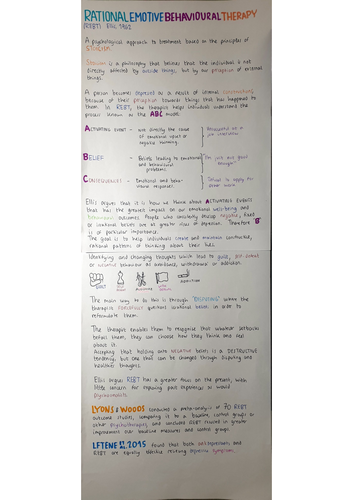 RATIONAL EMOTIVE BEHAVIOURAL THERAPY
(REBT) Ellis, 1962
A psychological approach to treatment based on the principles of
STOICISM.
Stoicism is a philosophy that believes that the individual is not
directly affected by outside things, but by our perception of external
things.
A person becomes depressed as a result of internal constructions
because of their perception towards things that has happened to
them. In REBT, the therapist helps individual understand the
process known as the ABC model.
ACTIVATING EVENT - not directly the cause
of emotional upset or
negative thinking.
Unsuccessful in a
job interview
BELIEF - Beliefs leading to emotional
and behavioural
problems
"I'm just not good
enough"
CONSEQUENCES - Emotional and beha-
vioural responses.
Refusal to apply for
other work
Ellis argues that it is how we think about ACTIVATING EVENTS
that has the greatest impact on our emotional well-being and
behavioural outcomes. People who constantly endorse negative, fixed
or irrational beliefs are at greater risk of depression. Therefore 'B'
is of particular importance.
The goal is to help individuals create and maintain constructed,
rational patterns of thinking about their lives.
Identifying and changing thoughts which lead to guilt, self-defeat
or negative behaviour as avoidance, withdrawal or addiction.
ADDICTION
The main way to do this is through "DISPUTING" where the
therapist FORCEFULLY questions irrational beliefs in order to
reformulate them.
The therapist enables them to recognise that whatever setbacks
befall them, they can choose how they think and feel
about it.
Accepting that holding onto NEGATIVE beliefs is a DESTRUCTIVE
tendency, but one that can be changed through disputing and
healthier thoughts.
Ellis argues REBT has a greater focus on the present, with
little concern for exploring past experiences as would
psychodynamic.
LYONS & WOODS conducted a meta-analysis of 70 REBT
outcome studies, comparing it to a baseline, control groups or
other psychotherapies, and concluded REBT resulted in greater
improvement over baseline measures and control groups.
IFTENE et al, 2015 found that both antidepressants and
REBT are equally effective reducing depressive symptoms.